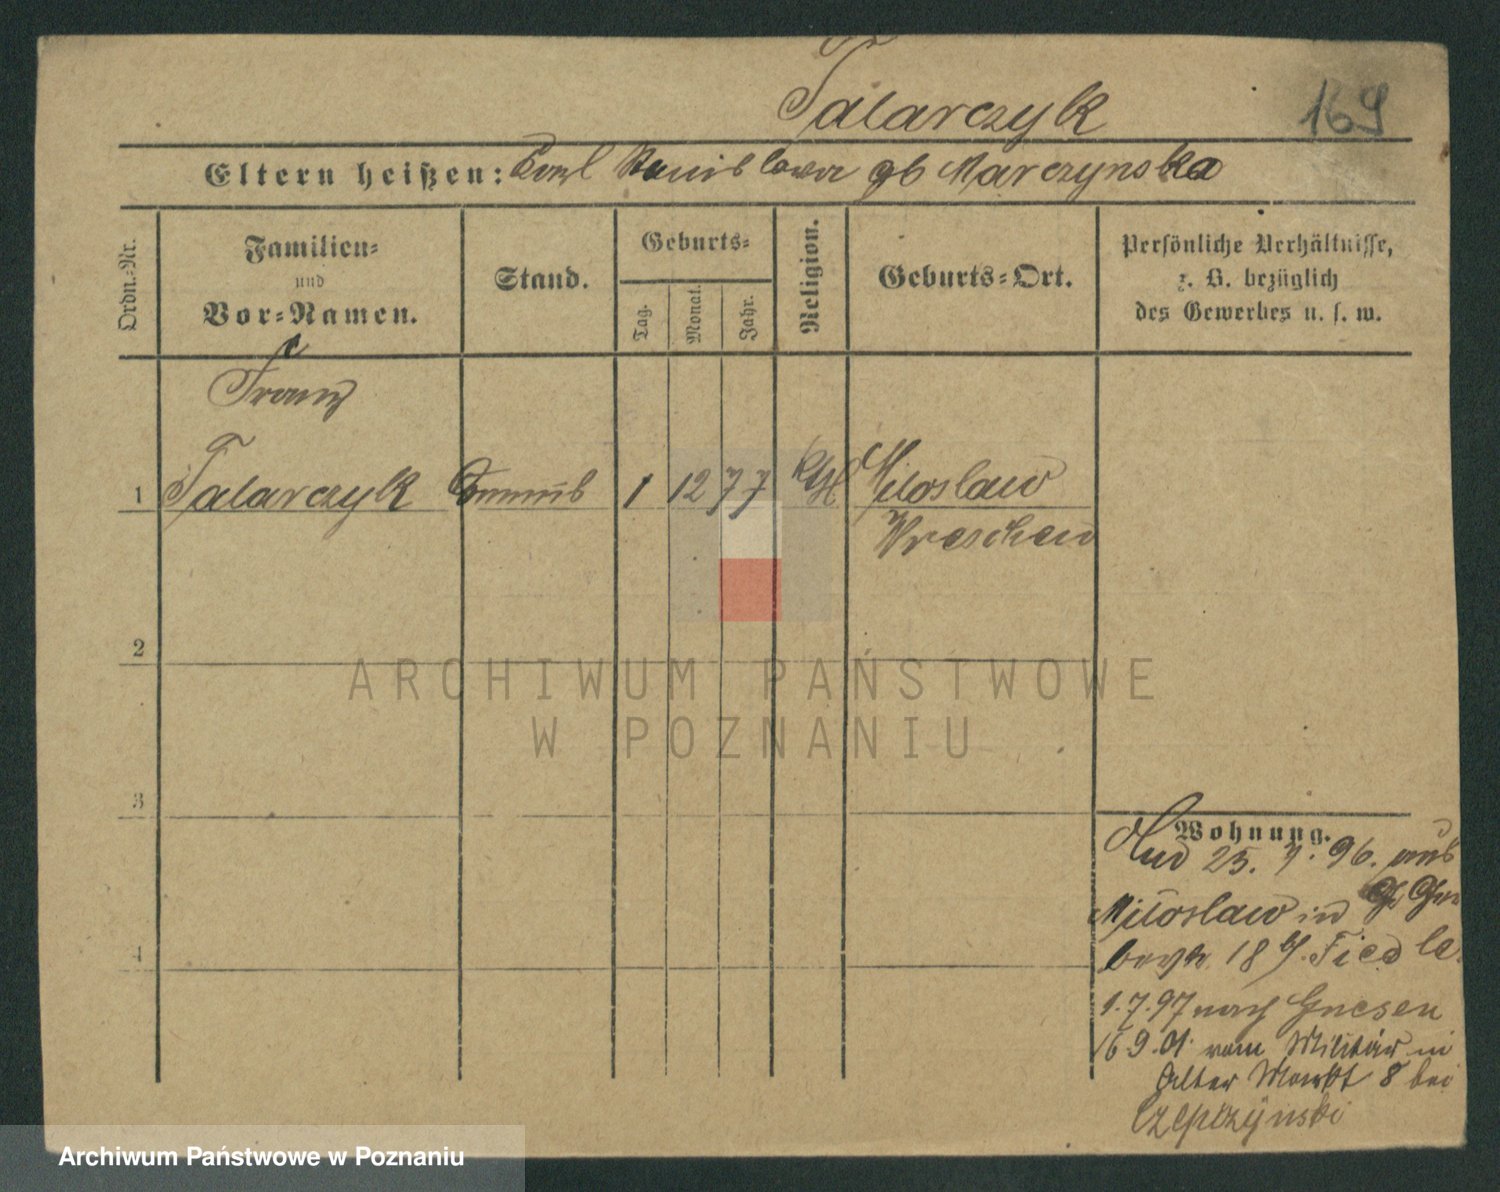 Talarczyk
169
Eltern heißen: Karl Stanislawa gb Marczynska
Ordn.=Nr.
Familien=
und
Vor=Namen.
Stand.
Geburts=
Tag.
Monat.
Jahr.
Religion.
Geburts=Ort.
Persönliche Verhältnisse,
z. B. bezüglich
des Gewerbes u. s. w.
Franz
1 Talarczyk 1 12 77 kth Miloslaw
Wreschen
2
3
4
ARCHIWUM PAŃSTWOWE
W POZNANIU
Wohnung.
25. 7. 96. aus
Miloslaw in Gr
18 b/.
1.7.97 nach Gnesen
16.9.01 vom Militär in
Alter Markt 8 bei
Czepczynski
Archiwum Państwowe w Poznaniu